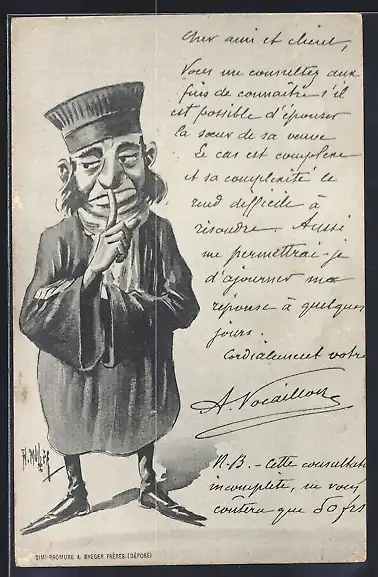 Cher ami et client,
Vous me consultez aux
fins de connaître s'il
est possible d'épouser
la sœur de sa veuve
Le cas est complexe
et sa complexité le
rend difficile à
résoudre. Aussi
me permettrai-je
d'ajourner ma
réponse à quelques
jours.
Cordialement votre
A. Vocaillon
N-B. - Cette consultat
incomplète, ne vous
coûtera que 50 frs
SIMI-BROMURE A. BREGER FRÈRES (DÉPOSÉ)